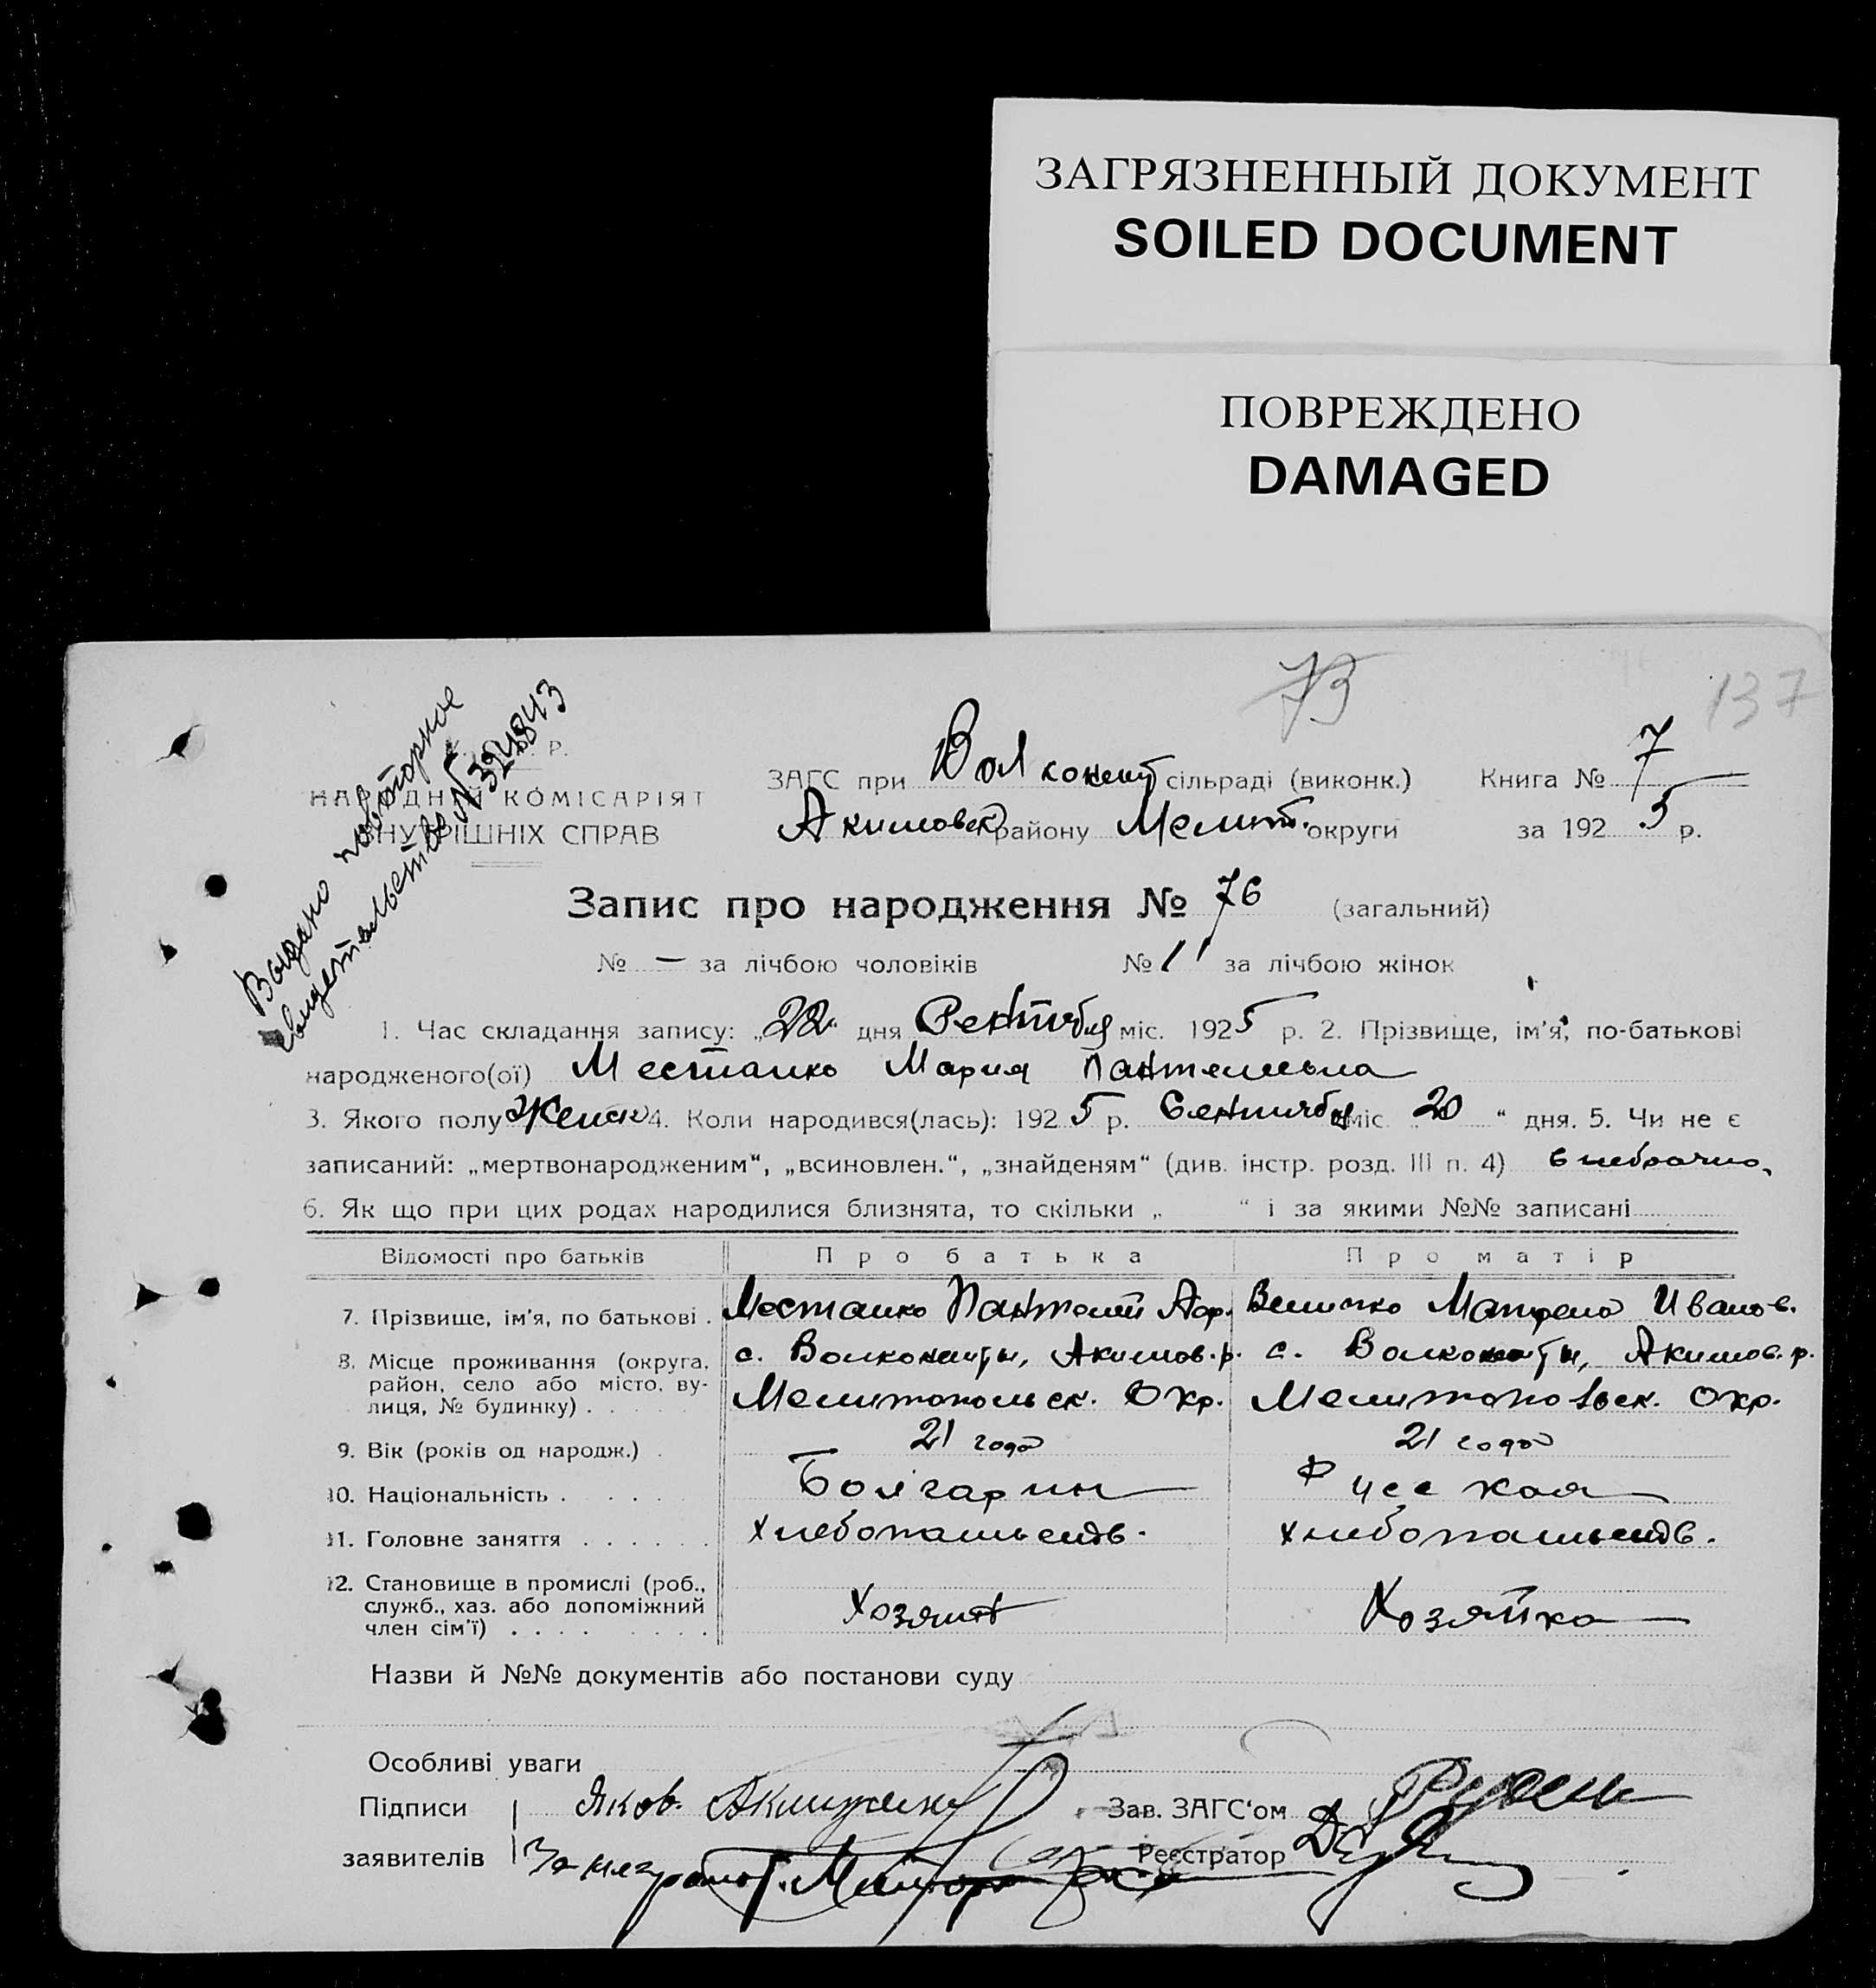 ЗАГРЯЗНЕННЫЙ ДОКУМЕНТ
SOILED DOCUMENT
ПОВРЕЖДЕНО
DAMAGED
73
137
Выдано повторное
свидетельство №
Р.
НАРОДНІЙ КОМІСАРІЯТ
ВНУТРІШНІХ СПРАВ
ЗАГС при Волконешт сільраді (виконк.) Книга № 7
Акимовск району Мелит. округи за 1925 р.
Запис про народження № 76 (загальний)
№ — за лічбою чоловіків № за лічбою жінок
1. Час складання запису: „22“ дня Сентября міс. 1925 р. 2. Прізвище, ім'я, по-батькові
народженого(ої) Места­нко Мария Пантелеевна
3. Якого полу Женск 4. Коли народився(лась): 1925 р. Сентября міс. 20 “ дня. 5. Чи не є
записаний: „мертвонародженим“, „всиновлен.“, „знайденям“ (див. інстр. розд. III п. 4)
6. Як що при цих родах народилися близнята, то скільки „ “ і за якими №№ записані
Відомості про батьків Про батька Про матір
7. Прізвище, ім'я, по батькові . Местанко Пантелей Величко Матрена Иванов.
8. Місце проживання (округа, район, село або місто, вулиця, № будинку) . с. Волконешты, Акимов. р. Мелитопольск. Окр. с. Волконешты, Акимов. р. Мелитопольск. Окр.
9. Вік (років од народж.) . 21 года 21 года
10. Національність . Болгарин Русская
11. Головне заняття . хлебопашество. хлебопашество.
12. Становище в промислі (роб., служб., хаз. або допоміжний член сім'ї) . Хозяин Хозяйка
Назви й №№ документів або постанови суду
Особливі уваги
Підписи Яков. Зав. ЗАГС'ом
заявителів За неграмот. Реєстратор